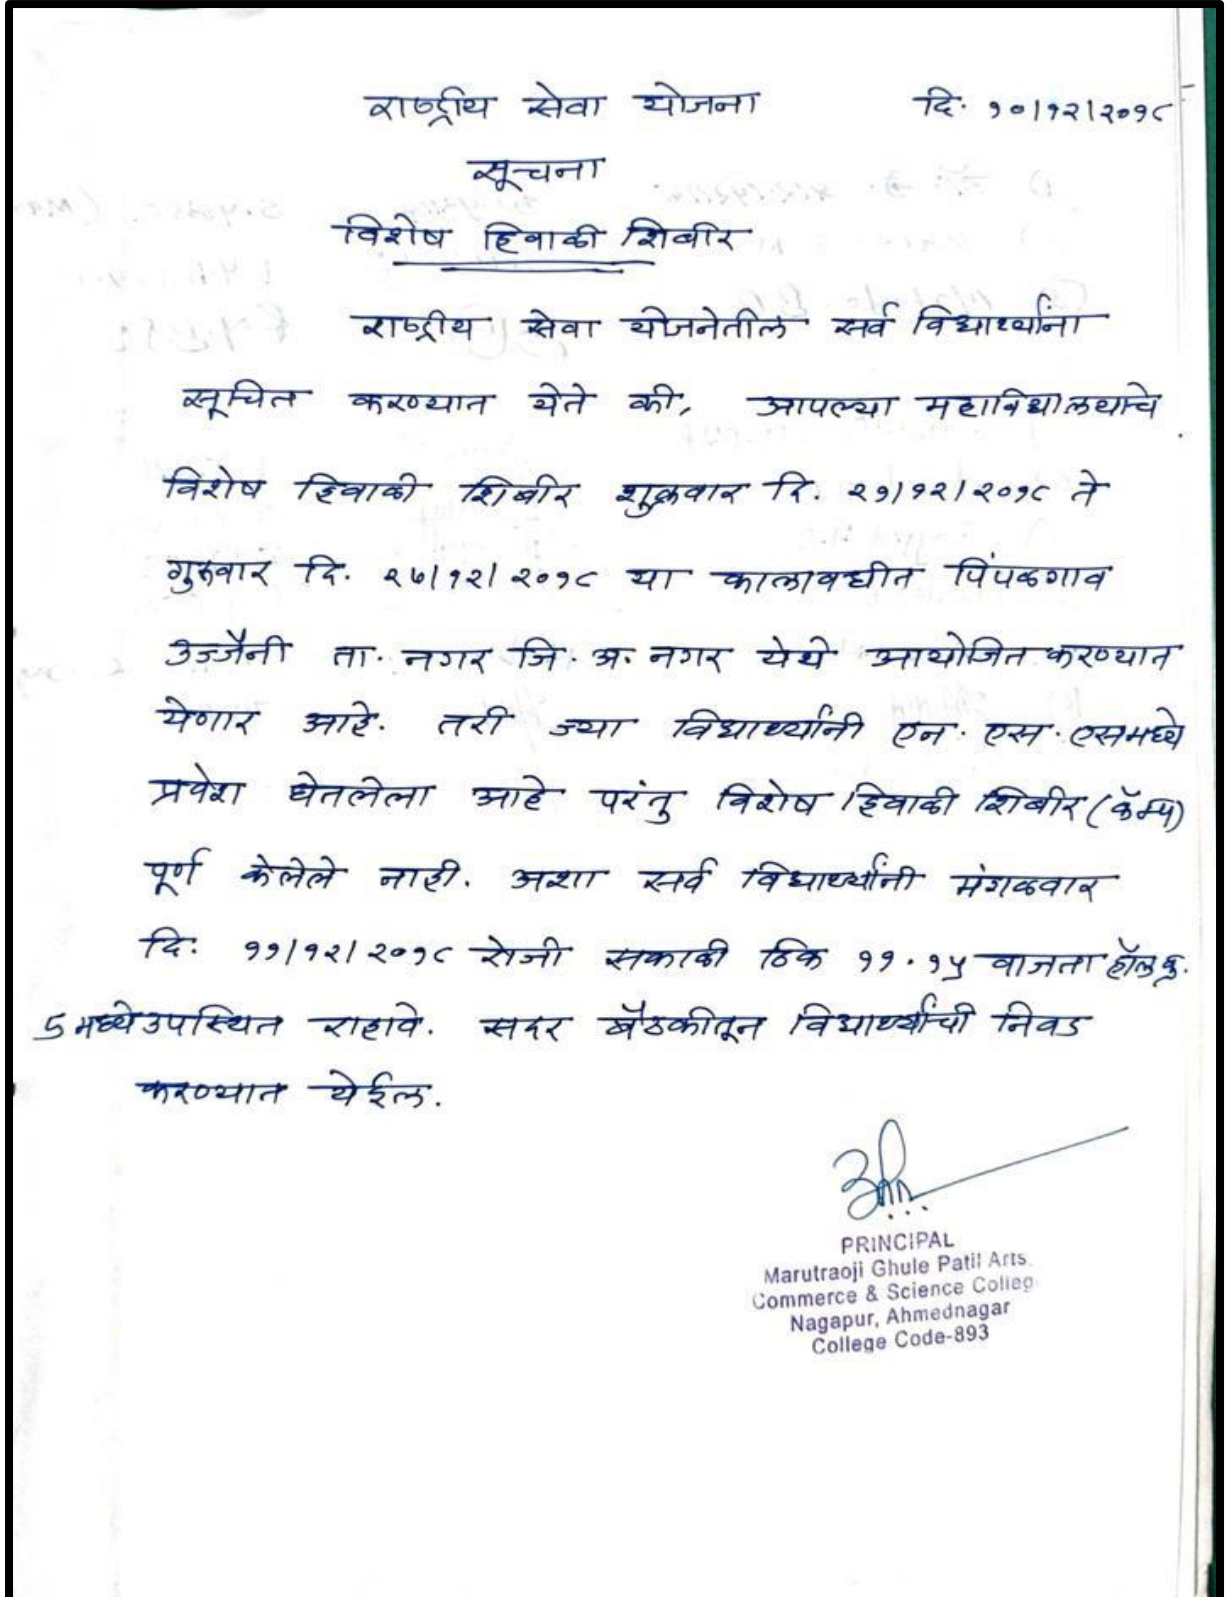 राष्ट्रीय सेवा योजना दि. १०/१२/२०१८
सूचना
विशेष हिवाळी शिबीर
राष्ट्रीय सेवा योजनेतील सर्व विद्यार्थ्यांना
सूचित करण्यात येते की, आपल्या महाविद्यालयाचे
विशेष हिवाळी शिबीर शुक्रवार दि. २१/१२/२०१८ ते
गुरुवार दि. २७/१२/२०१८ या कालावधीत पिंपळगाव
उज्जैनी ता. नगर जि. अ. नगर येथे आयोजित करण्यात
येणार आहे. तरी ज्या विद्यार्थ्यांनी एन. एस. एसमध्ये
प्रवेश घेतलेला आहे परंतु विशेष हिवाळी शिबीर (कॅम्प)
पूर्ण केलेले नाही. अशा सर्व विद्यार्थ्यांनी मंगळवार
दि. ११/१२/२०१८ रोजी सकाळी ठिक ११.१५ वाजता हॉल क्र.
5 मध्ये उपस्थित राहावे. सदर बैठकीतून विद्यार्थ्यांची निवड
करण्यात येईल.
PRINCIPAL
Marutraoji Ghule Patil Arts,
Commerce & Science Colleg
Nagapur, Ahmednagar
College Code-893